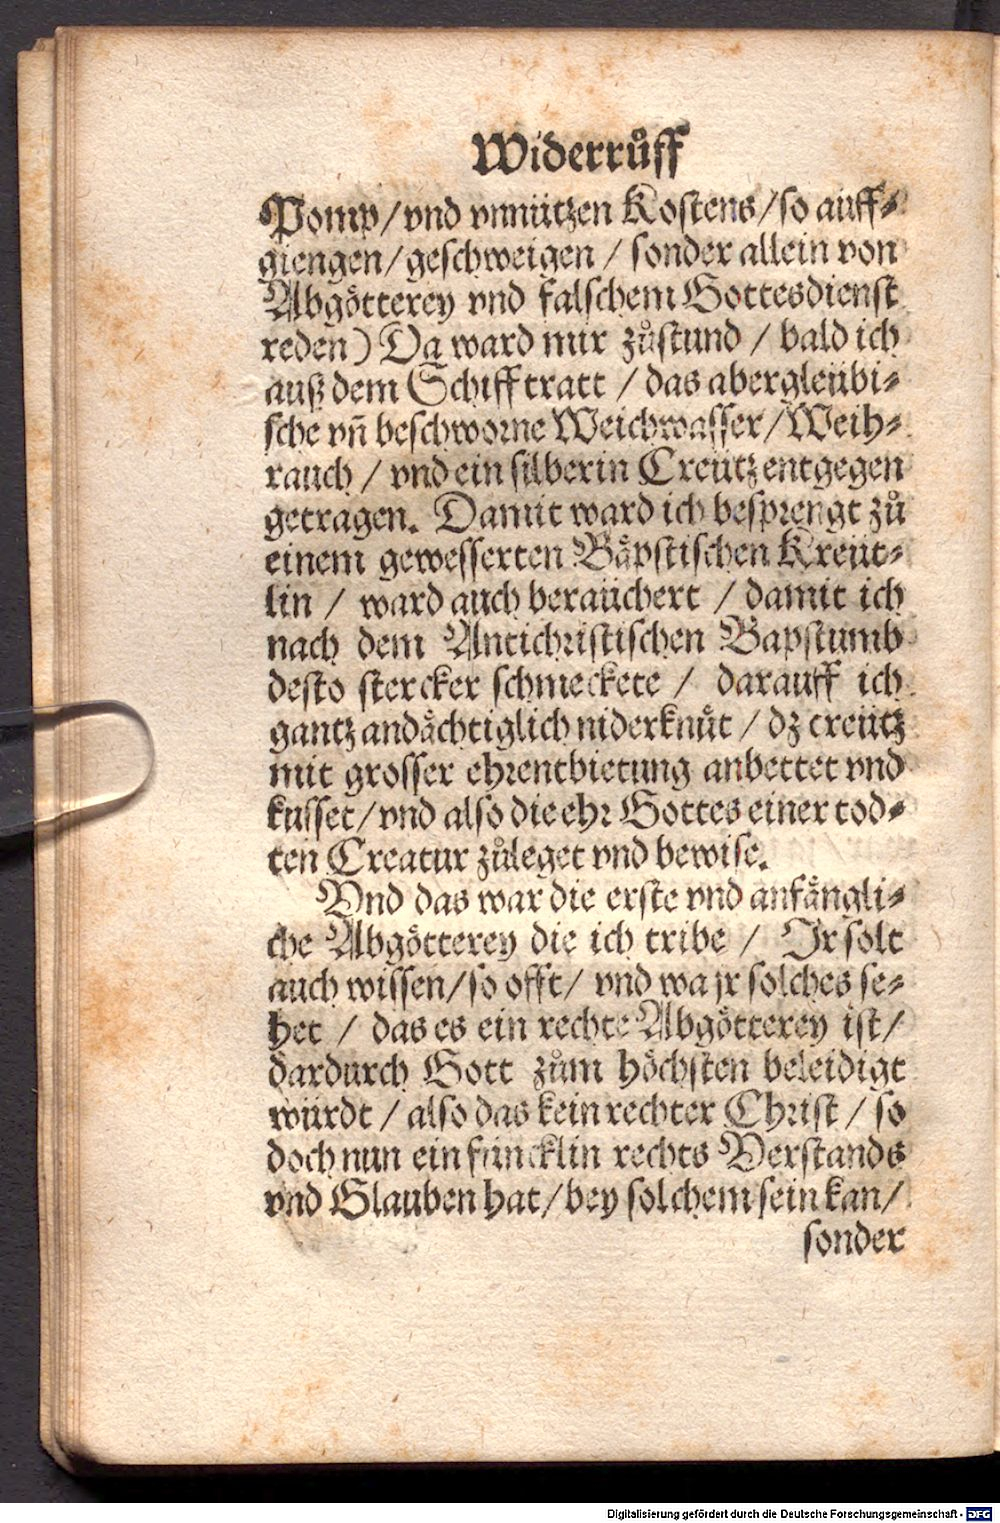 Widerrůff
Pomp/vnd vnnützen Kostens/so auff-
giengen/geschweigen / sonder allein von
Abgötterey vnd falschem Gottesdienst
reden) Da ward mir zůstund / bald ich
auß dem Schiff tratt / das abergleübi-
sche vñ beschworne Weichwasser/Weih-
rauch / vnd ein silberin Creütz entgegen
getragen. Damit ward ich besprengt zů
einem gewesserten Bäpstischen Kreüt-
lin / ward auch beraüchert / damit ich
nach dem Antichristischen Bapstumb
desto stercker schmeckete / darauff ich
gantz andächtiglich niderknüt / dz creütz
mit grosser ehrentbietung anbettet vnd
kusset/vnd also die ehr Gottes einer tod-
ten Creatur zůleget vnd bewise.
Vnd das war die erste vnd anfängli-
che Abgötterey die ich tribe / Ir solt
auch wissen/so offt/ vnd wa jr solches se-
het / das es ein rechte Abgötterey ist/
dardurch Gott zům höchsten beleidigt
würdt / also das kein rechter Christ / so
doch nun ein füncklin rechts Verstands
vnd Glauben hat/bey solchem sein kan/
sonder
Digitalisierung gefördert durch die Deutsche Forschungsgemeinschaft - DFG